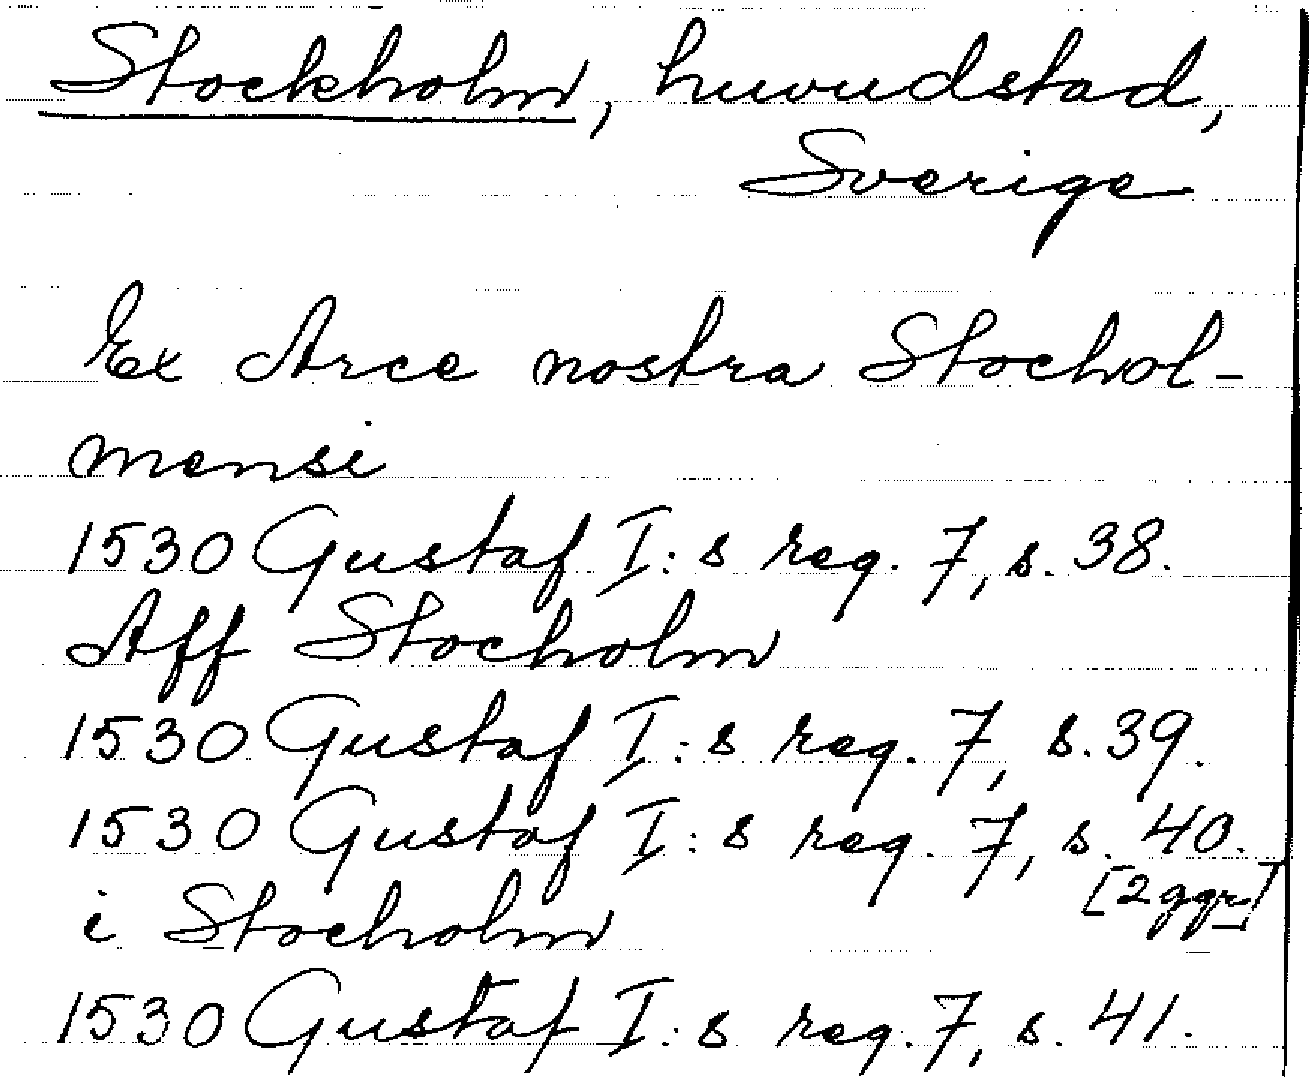 Stockholm, huvudstad,
Sverige
Ex Arce nostra Stochol-
mensi
1530 Gustaf I:s reg. 7, s. 38.
Aff Stocholm
1530 Gustaf I:s reg. 7, s. 39.
1530 Gustaf I:s reg. 7, s. 40.
[2 ggr]
i Stocholm
1530 Gustaf I:s reg. 7, s. 41.